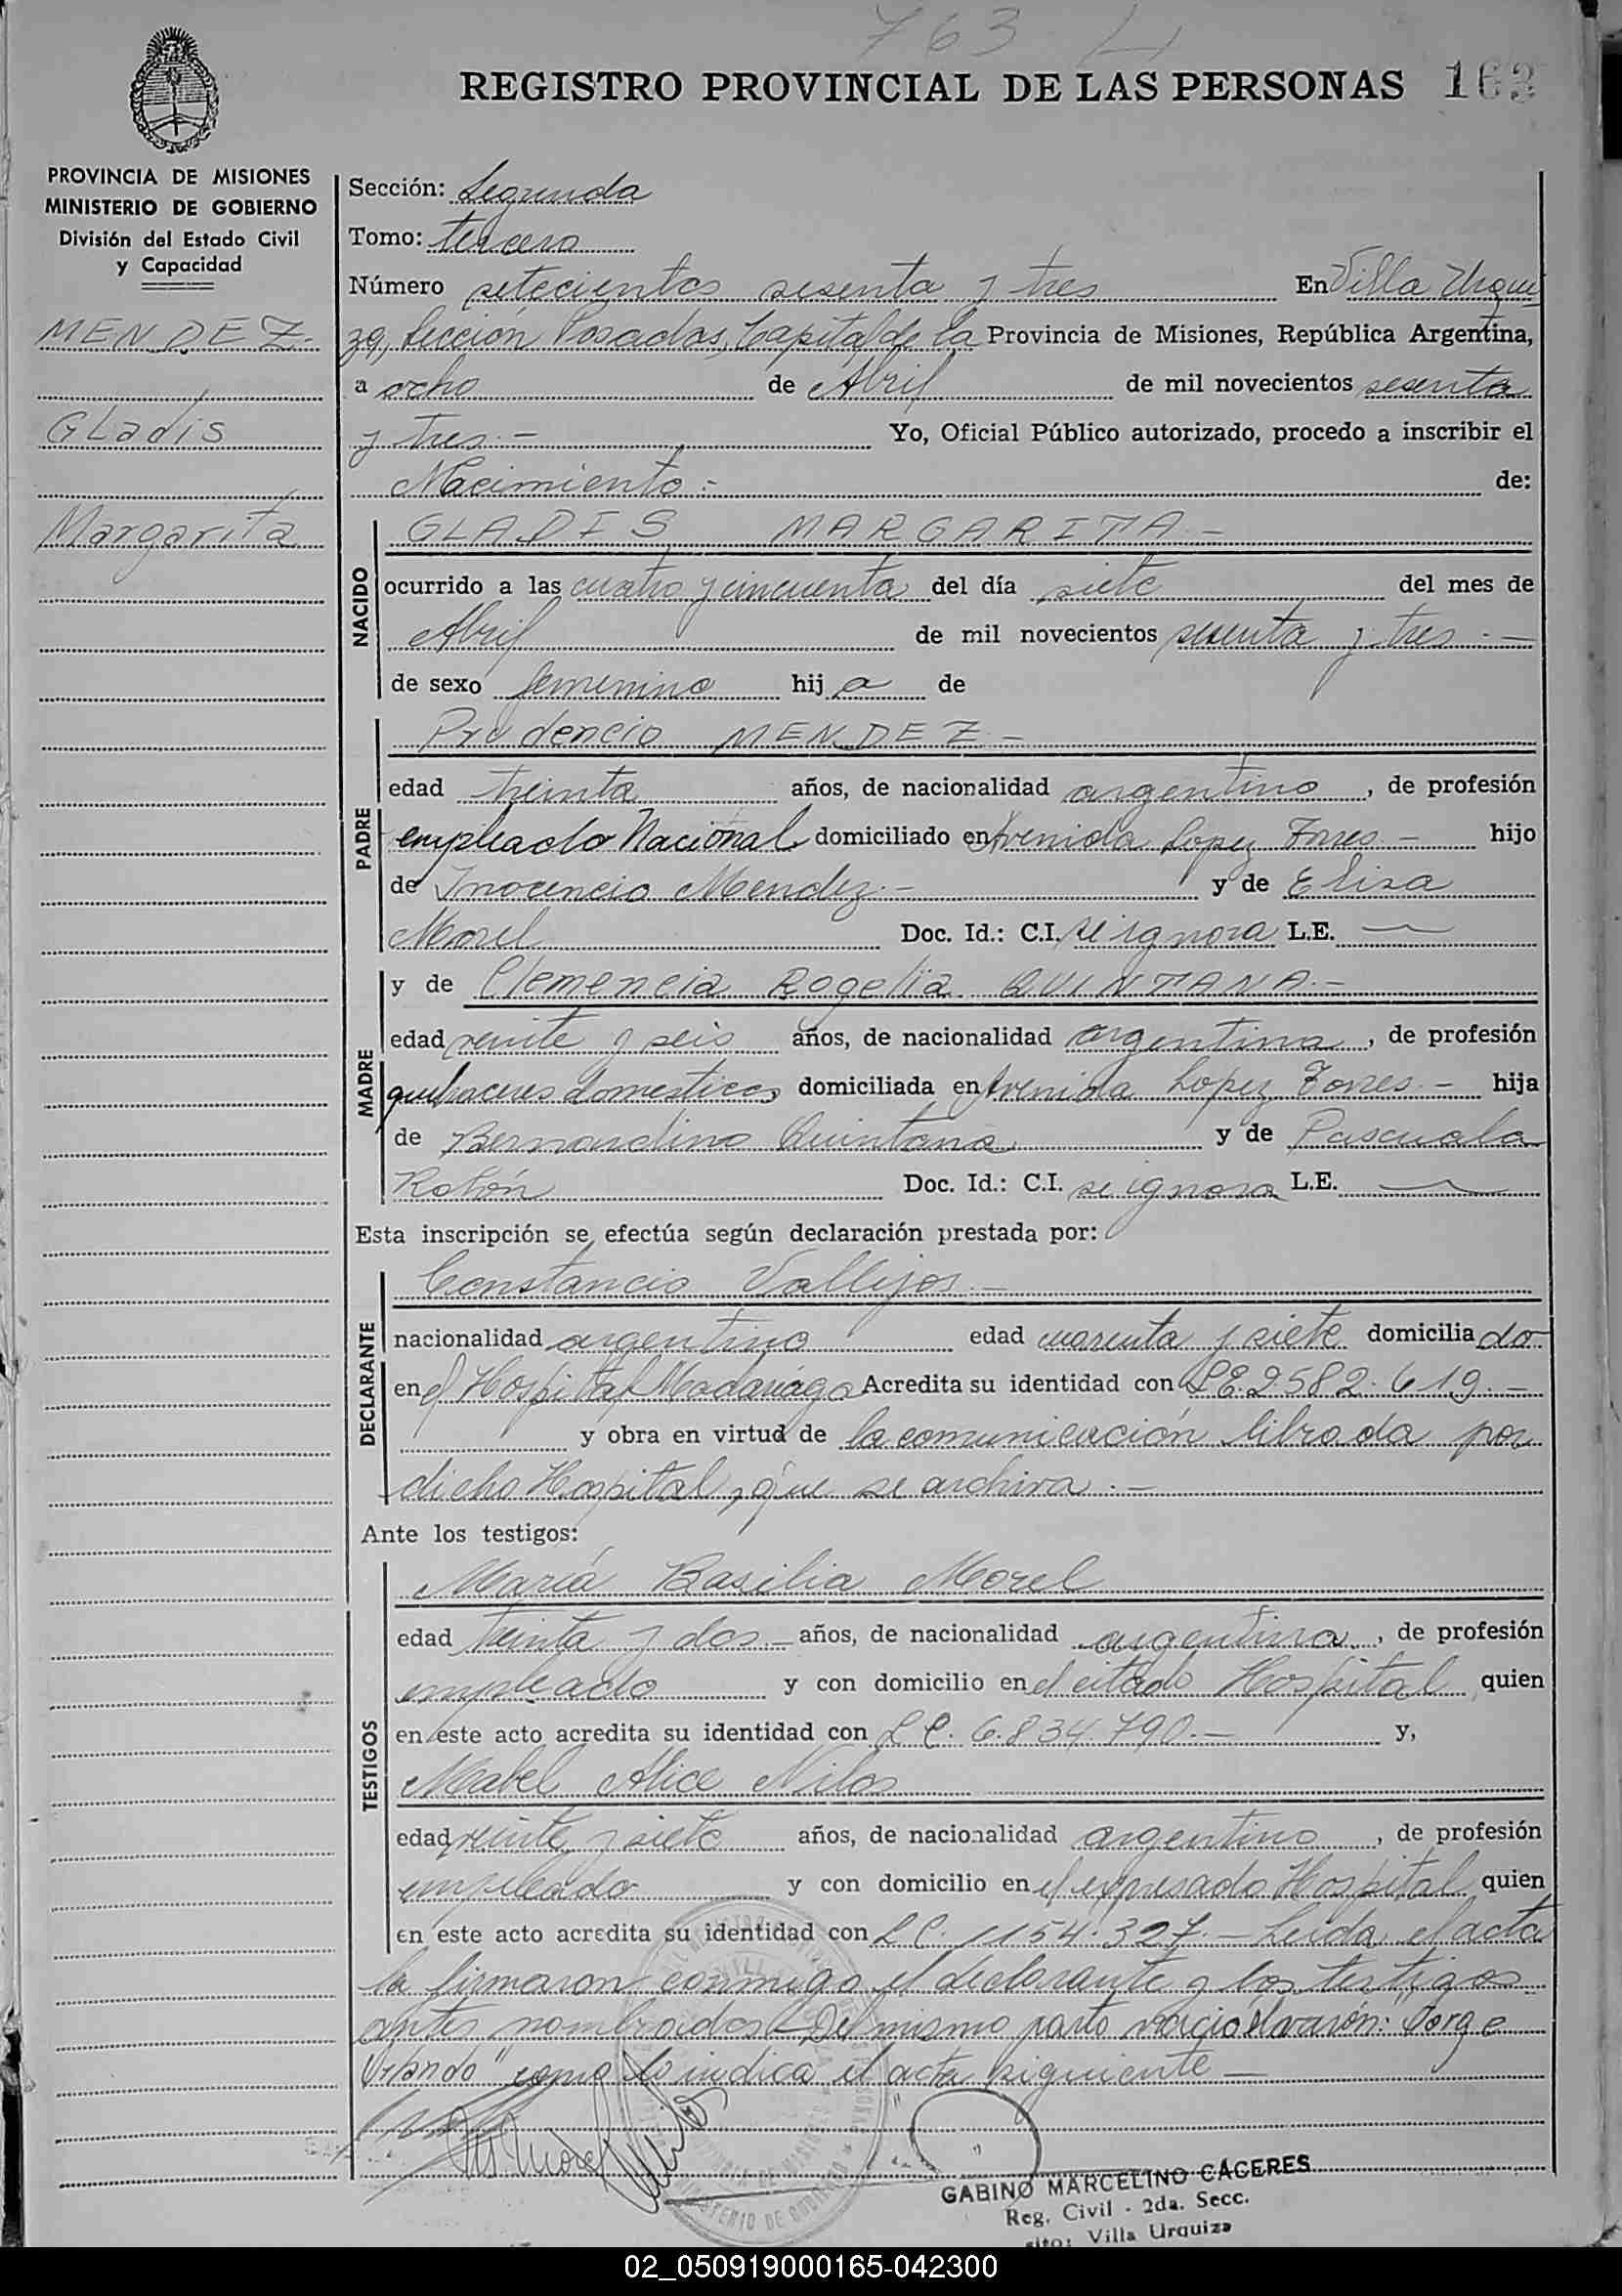 763
REGISTRO PROVINCIAL DE LAS PERSONAS 163
PROVINCIA DE MISIONES
MINISTERIO DE GOBIERNO
División del Estado Civil
y Capacidad
MENDEZ.-
Gladis
Margarita
Sección: Segunda
Tomo: tercero
Número setecientos sesenta y tres En Villa Urqui
za, Sección Posadas, Capital de la Provincia de Misiones, República Argentina,
a ocho de Abril de mil novecientos sesenta
y tres.- Yo, Oficial Público autorizado, procedo a inscribir el
Nacimiento.- de:
NACIDO
GLADIS MARGARITA.-
ocurrido a las cuatro y cincuenta del día siete del mes de
Abril de mil novecientos sesenta y tres.-
de sexo femenino hija de
PADRE
Prudencio MENDEZ.-
edad treinta años, de nacionalidad argentino, de profesión
empleado Nacional domiciliado en Avenida Lopez Torres.- hijo
de Inocencio Mendez.- y de Elisa
Morel Doc. Id.: C.I. se ignora L.E. —
MADRE
y de Clemencia Rogelia QUINTANA.-
edad veinte y seis años, de nacionalidad argentina, de profesión
quehaceres domesticos domiciliada en Avenida Lopez Torres.- hija
de Bernardino Quintana y de Pascuala
Rolón Doc. Id.: C.I. se ignora L.E. —
Esta inscripción se efectúa según declaración prestada por:
DECLARANTE
Constancio Vallejos.-
nacionalidad argentino edad cuarenta y siete domiciliado
en el Hospital Madariaga Acredita su identidad con L.E. 2582.619.-
y obra en virtud de la comunicación librada por
dicho Hospital, que se archiva.-
Ante los testigos:
TESTIGOS
María Basilia Morel
edad treinta y dos.- años, de nacionalidad argentina, de profesión
empleado y con domicilio en el citado Hospital quien
en este acto acredita su identidad con L.C. 6.834.790.- y,
Mabel Alice Nilos
edad veinte y siete años, de nacionalidad argentino, de profesión
empleado y con domicilio en el expresado Hospital quien
en este acto acredita su identidad con L.C. 1154.327.- Leida el acta
la firmaron conmigo el declarante y los testigos
antes nombrados.- Del mismo parto nació el varón: "Jorge
Orlando" como lo indica el acta siguiente —
GABINO MARCELINO CACERES
Reg. Civil - 2da. Secc.
Villa Urquiza
02_050919000165-042300